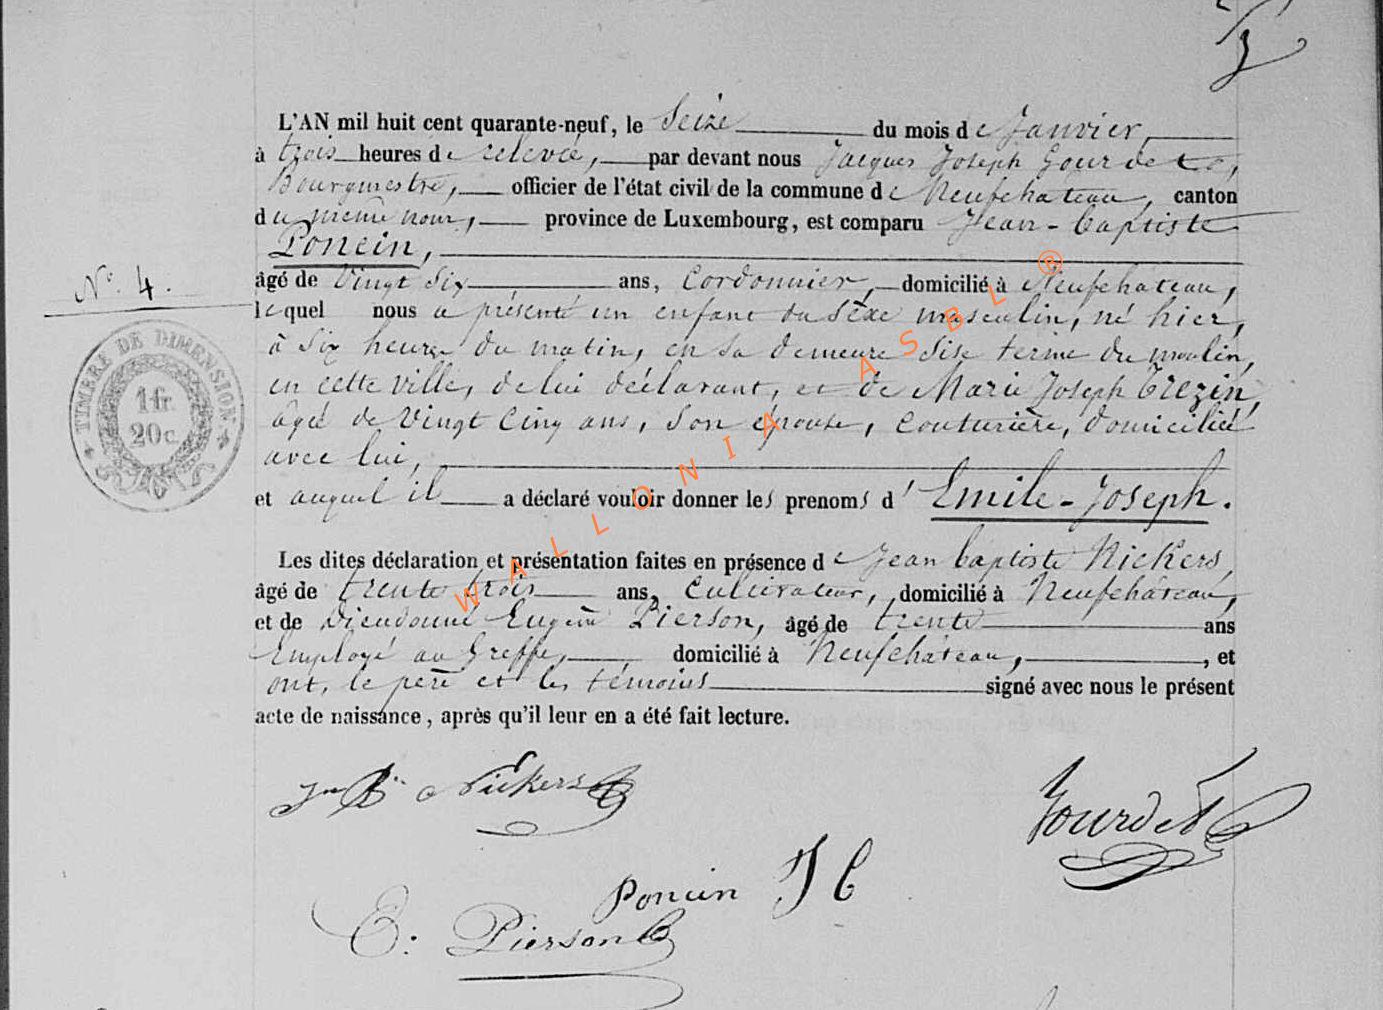 L'AN mil huit cent quarante-neuf, le Seize du mois de Janvier,
à trois heures de relevée, par devant nous Jacques Joseph Gourdet
Bourgmestre, officier de l'état civil de la commune de Neufchateau, canton
du même nom, province de Luxembourg, est comparu Jean-baptiste
Poncin,
N° 4.
âgé de Vingt Six ans, Cordonnier, domicilié à Neufchâteau,
lequel nous a présenté un enfant du Sèxe masculin, né hier,
à Six heures du matin, en Sa demeure Sise terme du moulin,
en cette ville, de lui déclarant, et de Marie Joseph Trezin,
agée de Vingt Cinq ans, Son épouse, Couturière, domiciliée
avec lui,
et auquel il a déclaré vouloir donner les prenoms d'Emile-Joseph.
TIMBRE DE DIMENSION
1 fr.
20 c.
Les dites déclaration et présentation faites en présence de Jean baptiste Nickers,
âgé de trente trois ans, Cultivateur, domicilié à Neufchâteau,
et de Dieudonné Eugène Pierson, âgé de trente ans
Employé au Greffe, domicilié à Neufchâteau, , et
ont, le père et les témoins signé avec nous le présent
acte de naissance, après qu'il leur en a été fait lecture.
Jn Bte Nickers
Gourdet
Poncin J B
E. Pierson
WALLONIA ASBL ®